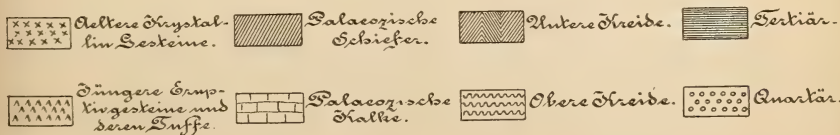 Aeltere Krystal-
lin Gesteine.
Palaeozoische
Schiefer.
Untere Kreide.
Tertiär.
Jüngere Erup-
tivgesteine und
deren Tuffe.
Palaeozoische
Kalke.
Obere Kreide.
Quartär.